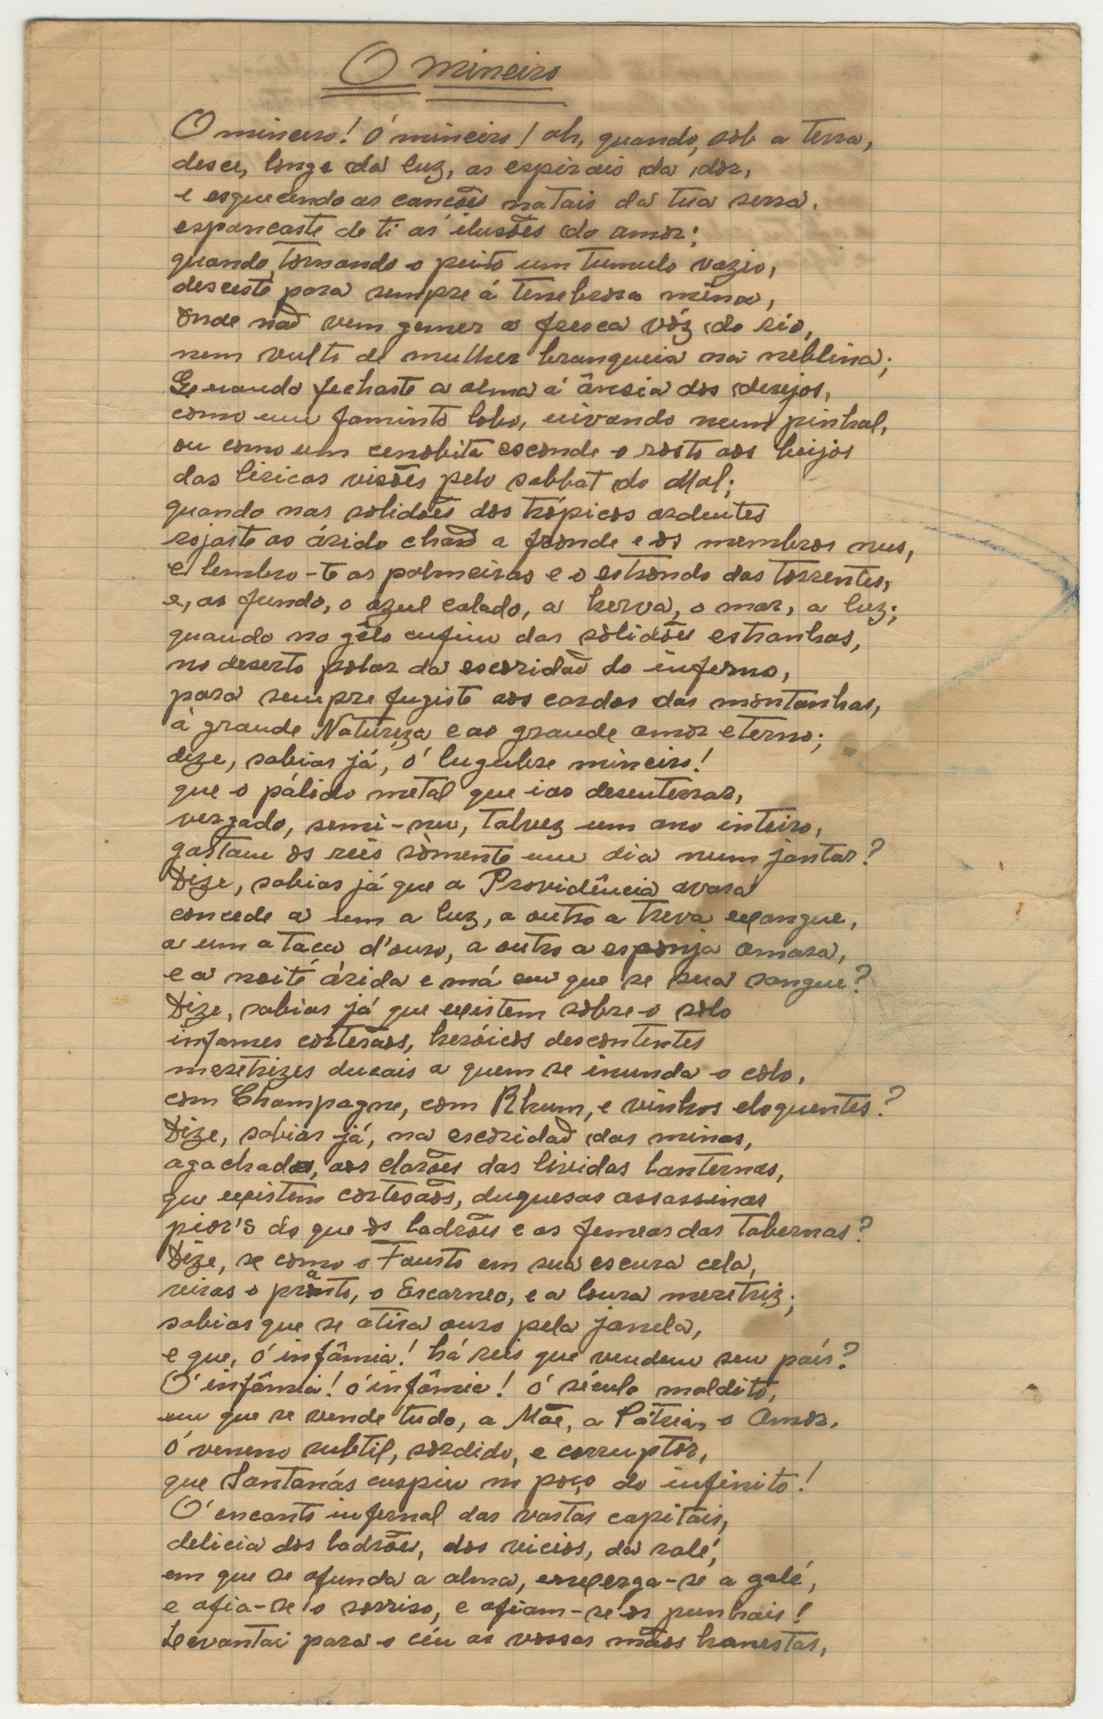 O mineiro
O mineiro! ó mineiro! oh, quando, sob a terra,
desce, longe da luz, as espirais da dor,
e esquecendo as canções natais da tua serra.
espancaste de ti as ilusões do amor;
quando, tornando o peito um tumulo vazio,
desceste para sempre á tenebrosa mina,
onde não vem gemer a fresca vóz do rio,
nem vulto de mulher branqueia na neblina;
Quando fechaste a alma á ânsia dos desejos,
como um faminto lobo, uivando num pinhal,
ou como um cenobita esconde o rosto aos beijos
das liricas visões pelo sabbat do Mal;
quando nas solidões dos trópicos ardentes
rojaste ao árido chão a fronde e os membros nus,
e lembro-te as palmeiras e o estrondo das torrentes,
e, ao fundo, o azul calado, a herva, o mar, a luz;
quando no gêlo enfim das solidões estranhas,
no deserto polar da escoridão do inferno,
para sempre fugiste aos cardos das montanhas,
á grande Natureza e ao grande amor eterno;
dize, sabias já, ó lugubre mineiro!
que o pálido metal que ias desenterrar,
vergado, semi-nu, talvez um ano inteiro,
gastam os reis sòmente um dia num jantar?
Dize, sabias já que a Providência avara
concede a um a luz, a outro a treva exangue,
a um a taça d'ouro, a outro a esponja amara,
e a noite árida e má em que se sua sangue?
Dize, sabias já que existem sobre o solo
infames cortesãos, heróicos descontentes
meretrizes ducais a quem se inunda o colo,
com Champagne, com Rhum, e vinhos eloquentes?
Dize, sabias já, na escoridão das minas,
agachado, aos clarões das lividas lanternas,
que existem cortesãos, duquesas assassinas
pior's do que os ladrões e as femeas das tabernas?
Dize, se como o Fausto em sua escura cela,
viras o pranto, o Escarneo, e a loura meretriz;
sabias que se atira ouro pela janela,
e que, ó infâmia! há reis que vendem seu país?
O' infâmia! ó infâmia! ó século maldito,
em que se vende tudo, a Mãe, a Pátria, o Amor.
ó veneno subtil, sordido, e corruptor,
que Santanás cuspiu no poço do infinito!
O' encanto infernal das vastas capitais,
delicia dos ladrões, dos vicios, da ralé,
em que se afunda a alma, enxerga-se a galé,
e afia-se o sorriso, e afiam-se os punhais!
Levantai para o céu as vossas mãos honestas,